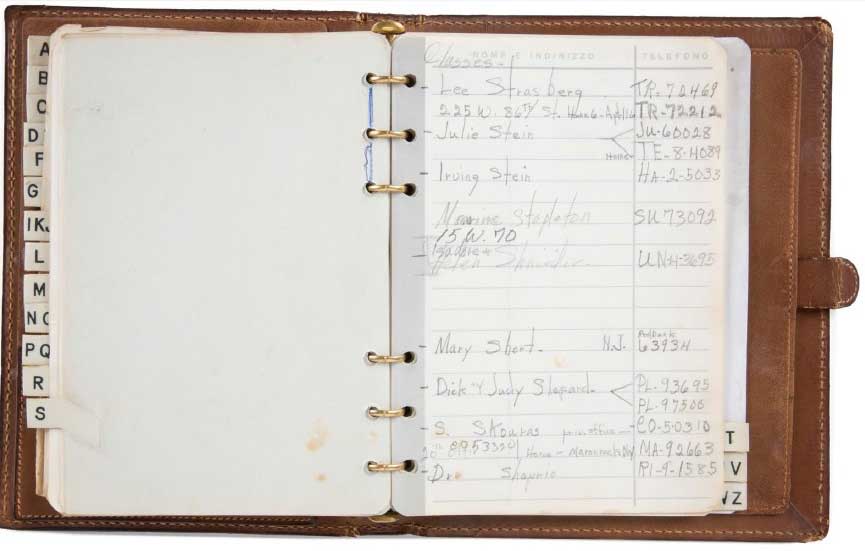 A
B
C
D
F
G
IKJ
L
M
NO
PQ
R
S
NOME E INDIRIZZO TELEFONO
Classes -
- Lee Strasberg TR-72469
225 W. 86TH St. TR-72212
- Julie Stein JU-60028
Home- TE-8-4089
- Irving Stein HA-2-5033
Maurine Stapleton SU 73092
15 W. 70
Isadore +
UN-4-3695
- Mary Short. N.J. 63934
- Dick + Judy Shepard. PL-93695
PL-97500
- S. Skouras priv. office - CO-5-0310
Home - MA-92663
- Dr. Shapiro RI-9-1585
T
V
WZ